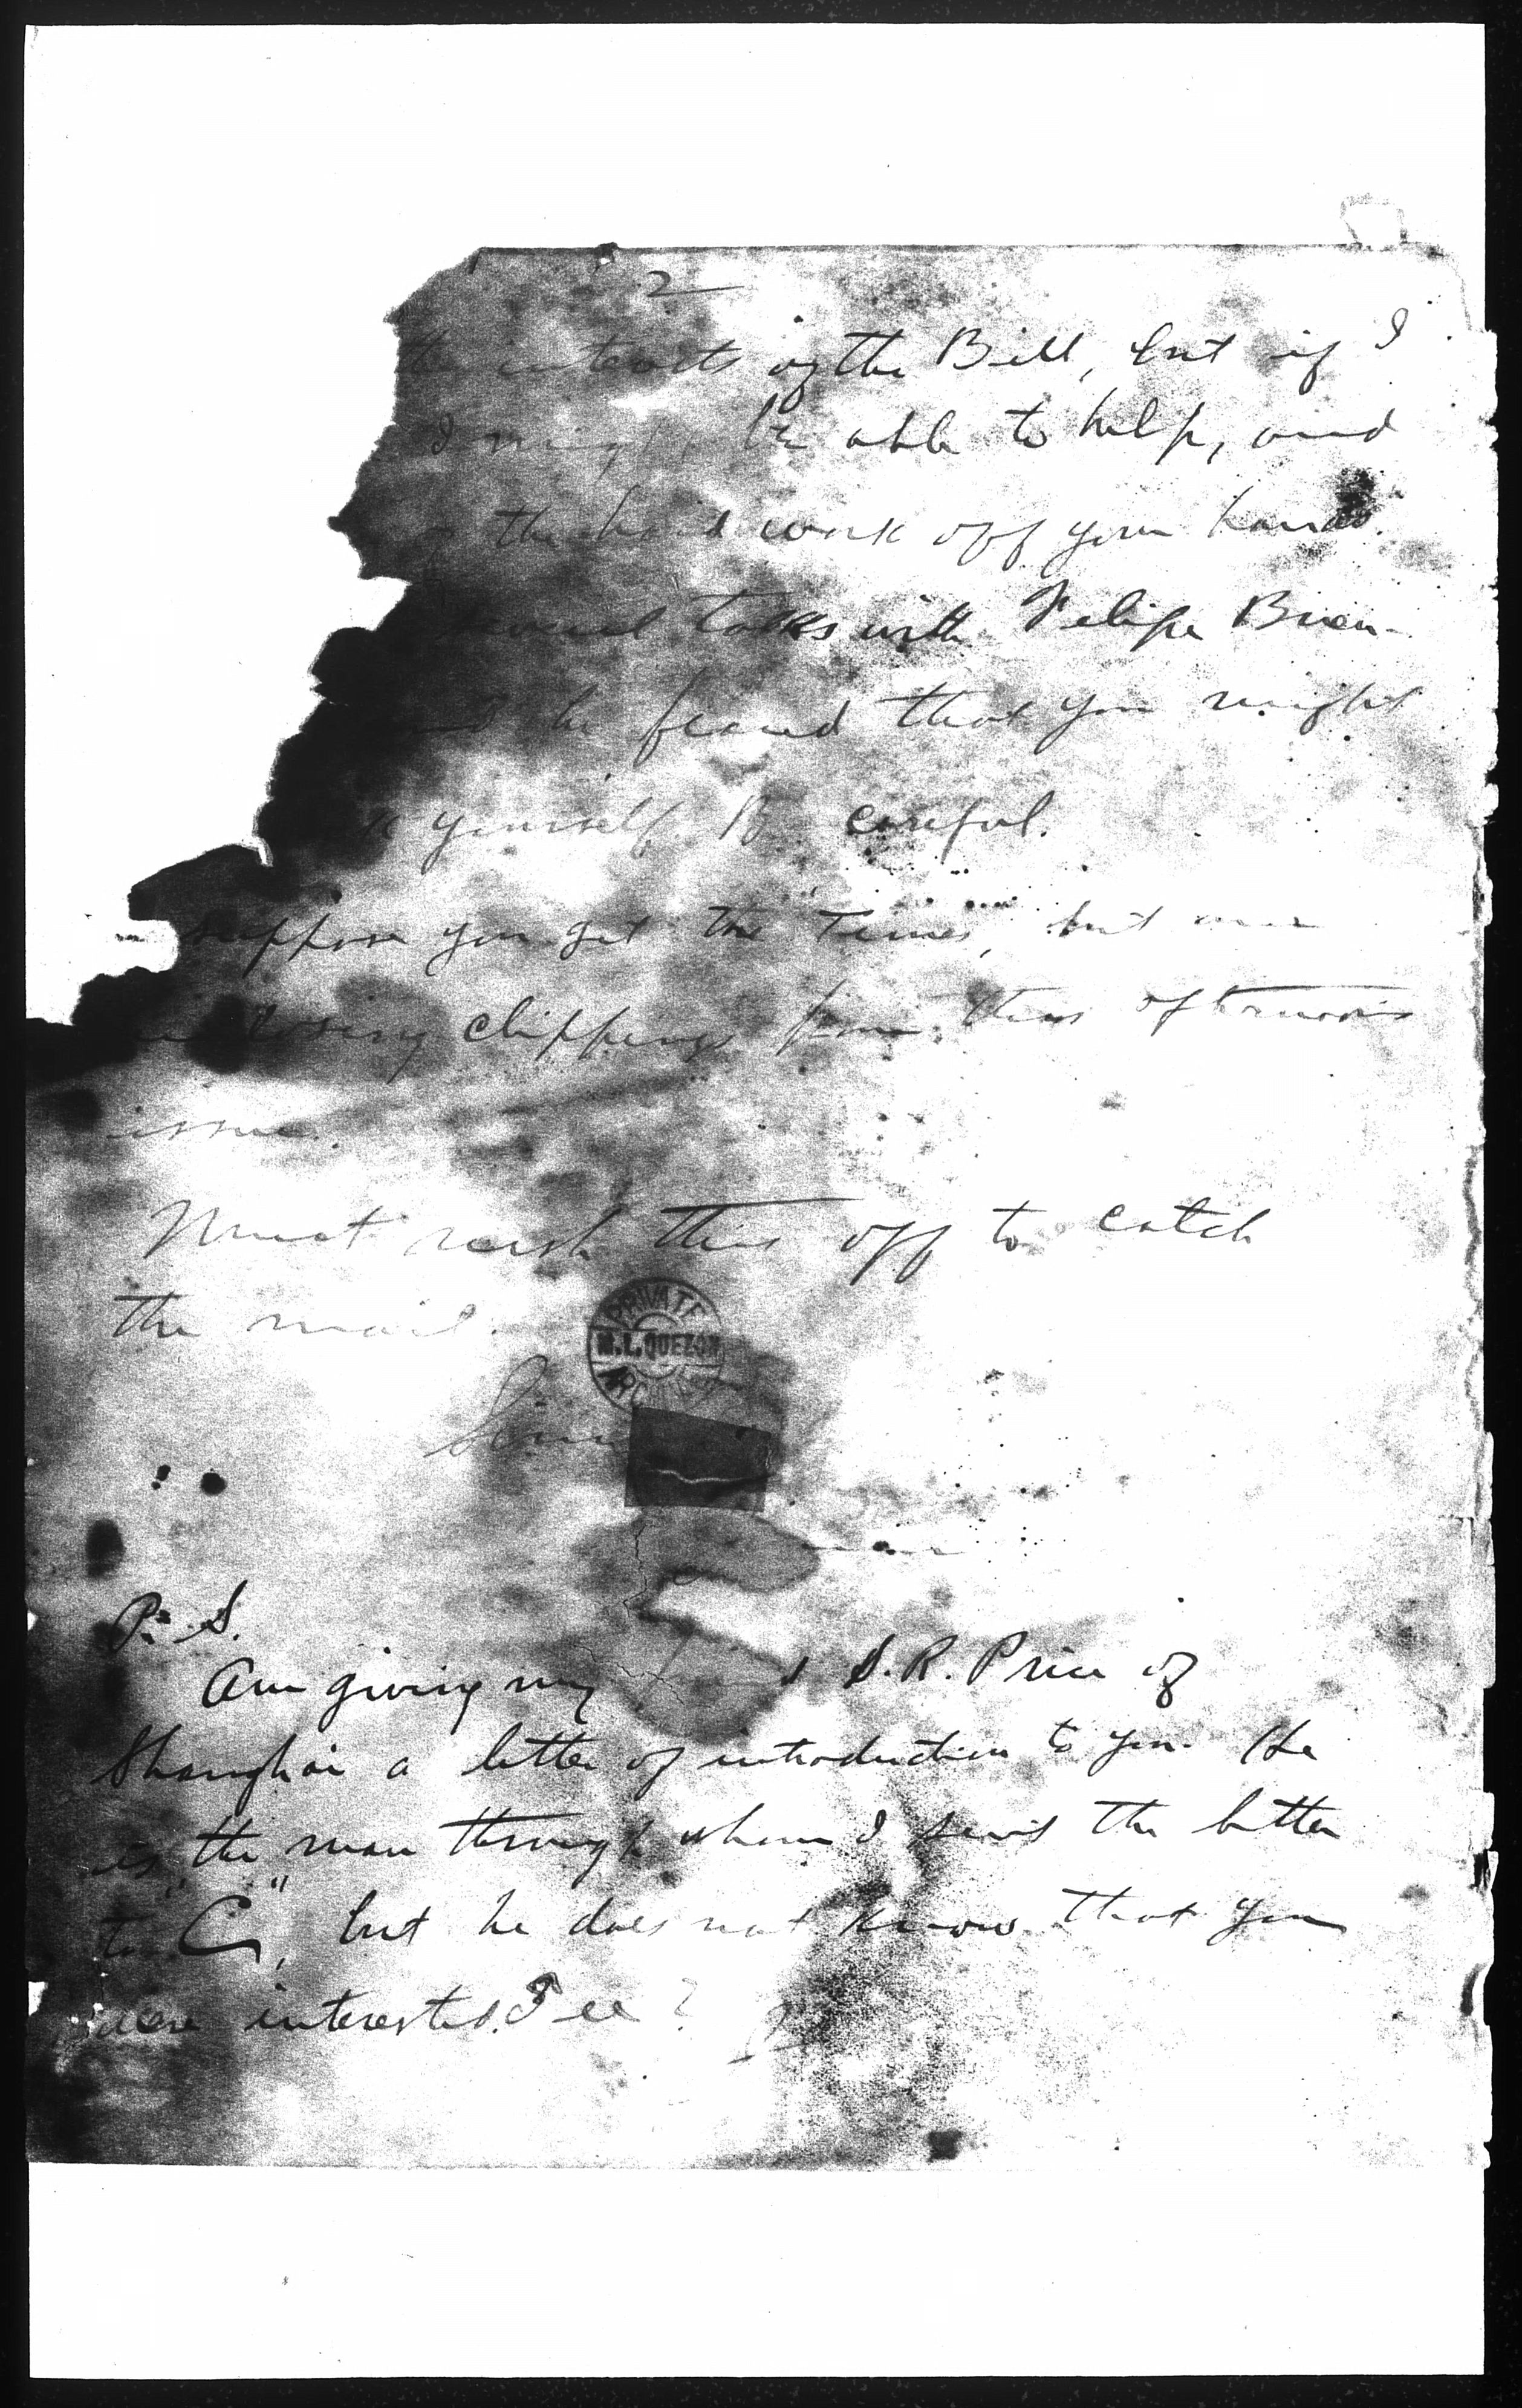 2
the interests of the Bill, but if I
I might be able to help, and
the hard work off your hands.
several talks with Felipe Buen-
and he feared that you might
yourself. Be careful.
suppose you get the Times, but am
enclosing clippings from this afternoon's
issue.
Must rush this off to catch
the mail.
PRIVATE
M. L. QUEZON
P. S.
Am giving my S. R. Price of
Shanghai a letter of introduction to you. He
is the man through whom I sent the letter
to "C", but he does not know that you
were interested. See?